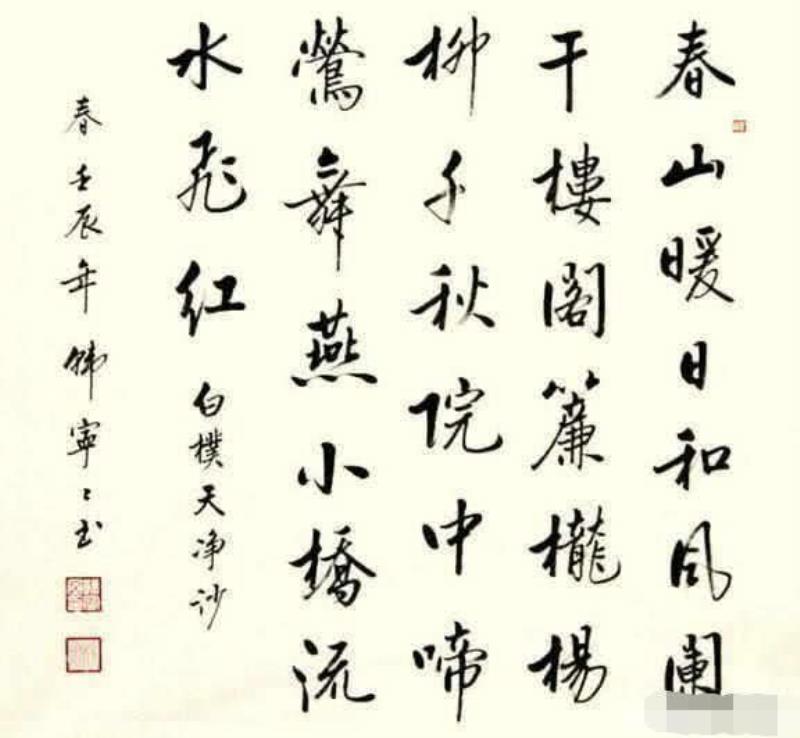 春山暖日和风闌
干樓閣簾櫳楊
柳千秋院中啼
鶯舞燕小橋流
水飞红
白樸天净沙
春壬辰年韩寧〻书